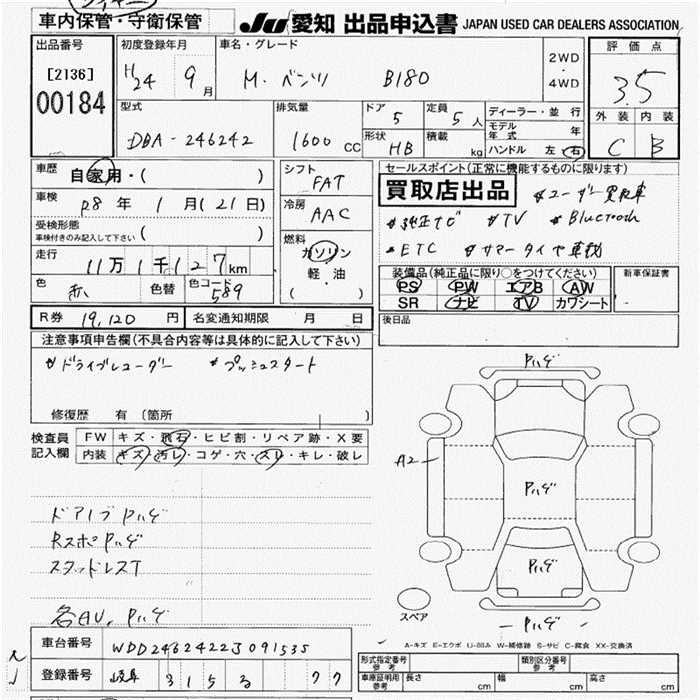 車内保管・守衛保管 JU 愛知 出品申込書 JAPAN USED CAR DEALERS ASSOCIATION
出品番号 初度登録年月 車名・グレード 2WD・4WD 評価点
[2136] 00184 H24 9月 M. ベンツ B180 3.5
型式 排気量 ドア 5 定員 5人 ディーラー・並行 外装 内装
DBA-246242 1600CC 形状 HB 積載 kg モデル年式 年 C B
ハンドル 左・右
車歴 自家用・( ) シフト FAT セールスポイント(正常に機能するものに限ります)
車検 R8年 1月(21日) 冷房 AAC 買取店出品 #ユーザー買取車
受検形態 車検付きのみ記入して下さい ( ) #純正ナビ #TV #Bluetooth
走行 11万1千127km 燃料 ガソリン 軽・油 ( ) #ETC #サマータイヤ車載
色 赤 色替 色コード 589 装備品(純正品に限り○をつけてください) 新車保証書
PS PW エアB AW
SR ナビ TV カワシート
R券 19,120円 名変通知期限 月 日 後日品
注意事項申告欄(不具合内容等は具体的に記入して下さい)
#ドライブレコーダー #プッシュスタート
修復歴 有(箇所
検査員記入欄 FW キズ・飛石・ヒビ割・リペア跡・X要
内装 キズ・汚レ・コゲ・穴・スレ・キレ・破レ
Pハゲ
A2
Pハゲ
Pハゲ
ドアノブPハゲ
RスポPハゲ
スタッドレスT
各AU, Pハゲ
スペア
Pハゲ
A-キズ E-エクボ U-凹み W-補修跡 S-サビ C-腐食 XX-交換済
車台番号 WDD2462422J091535
登録番号 岐阜 315 る 77
形式指定番号 参考 類別区分番号 参考
車庫証明用 参考 長さ cm 幅 cm 高さ cm